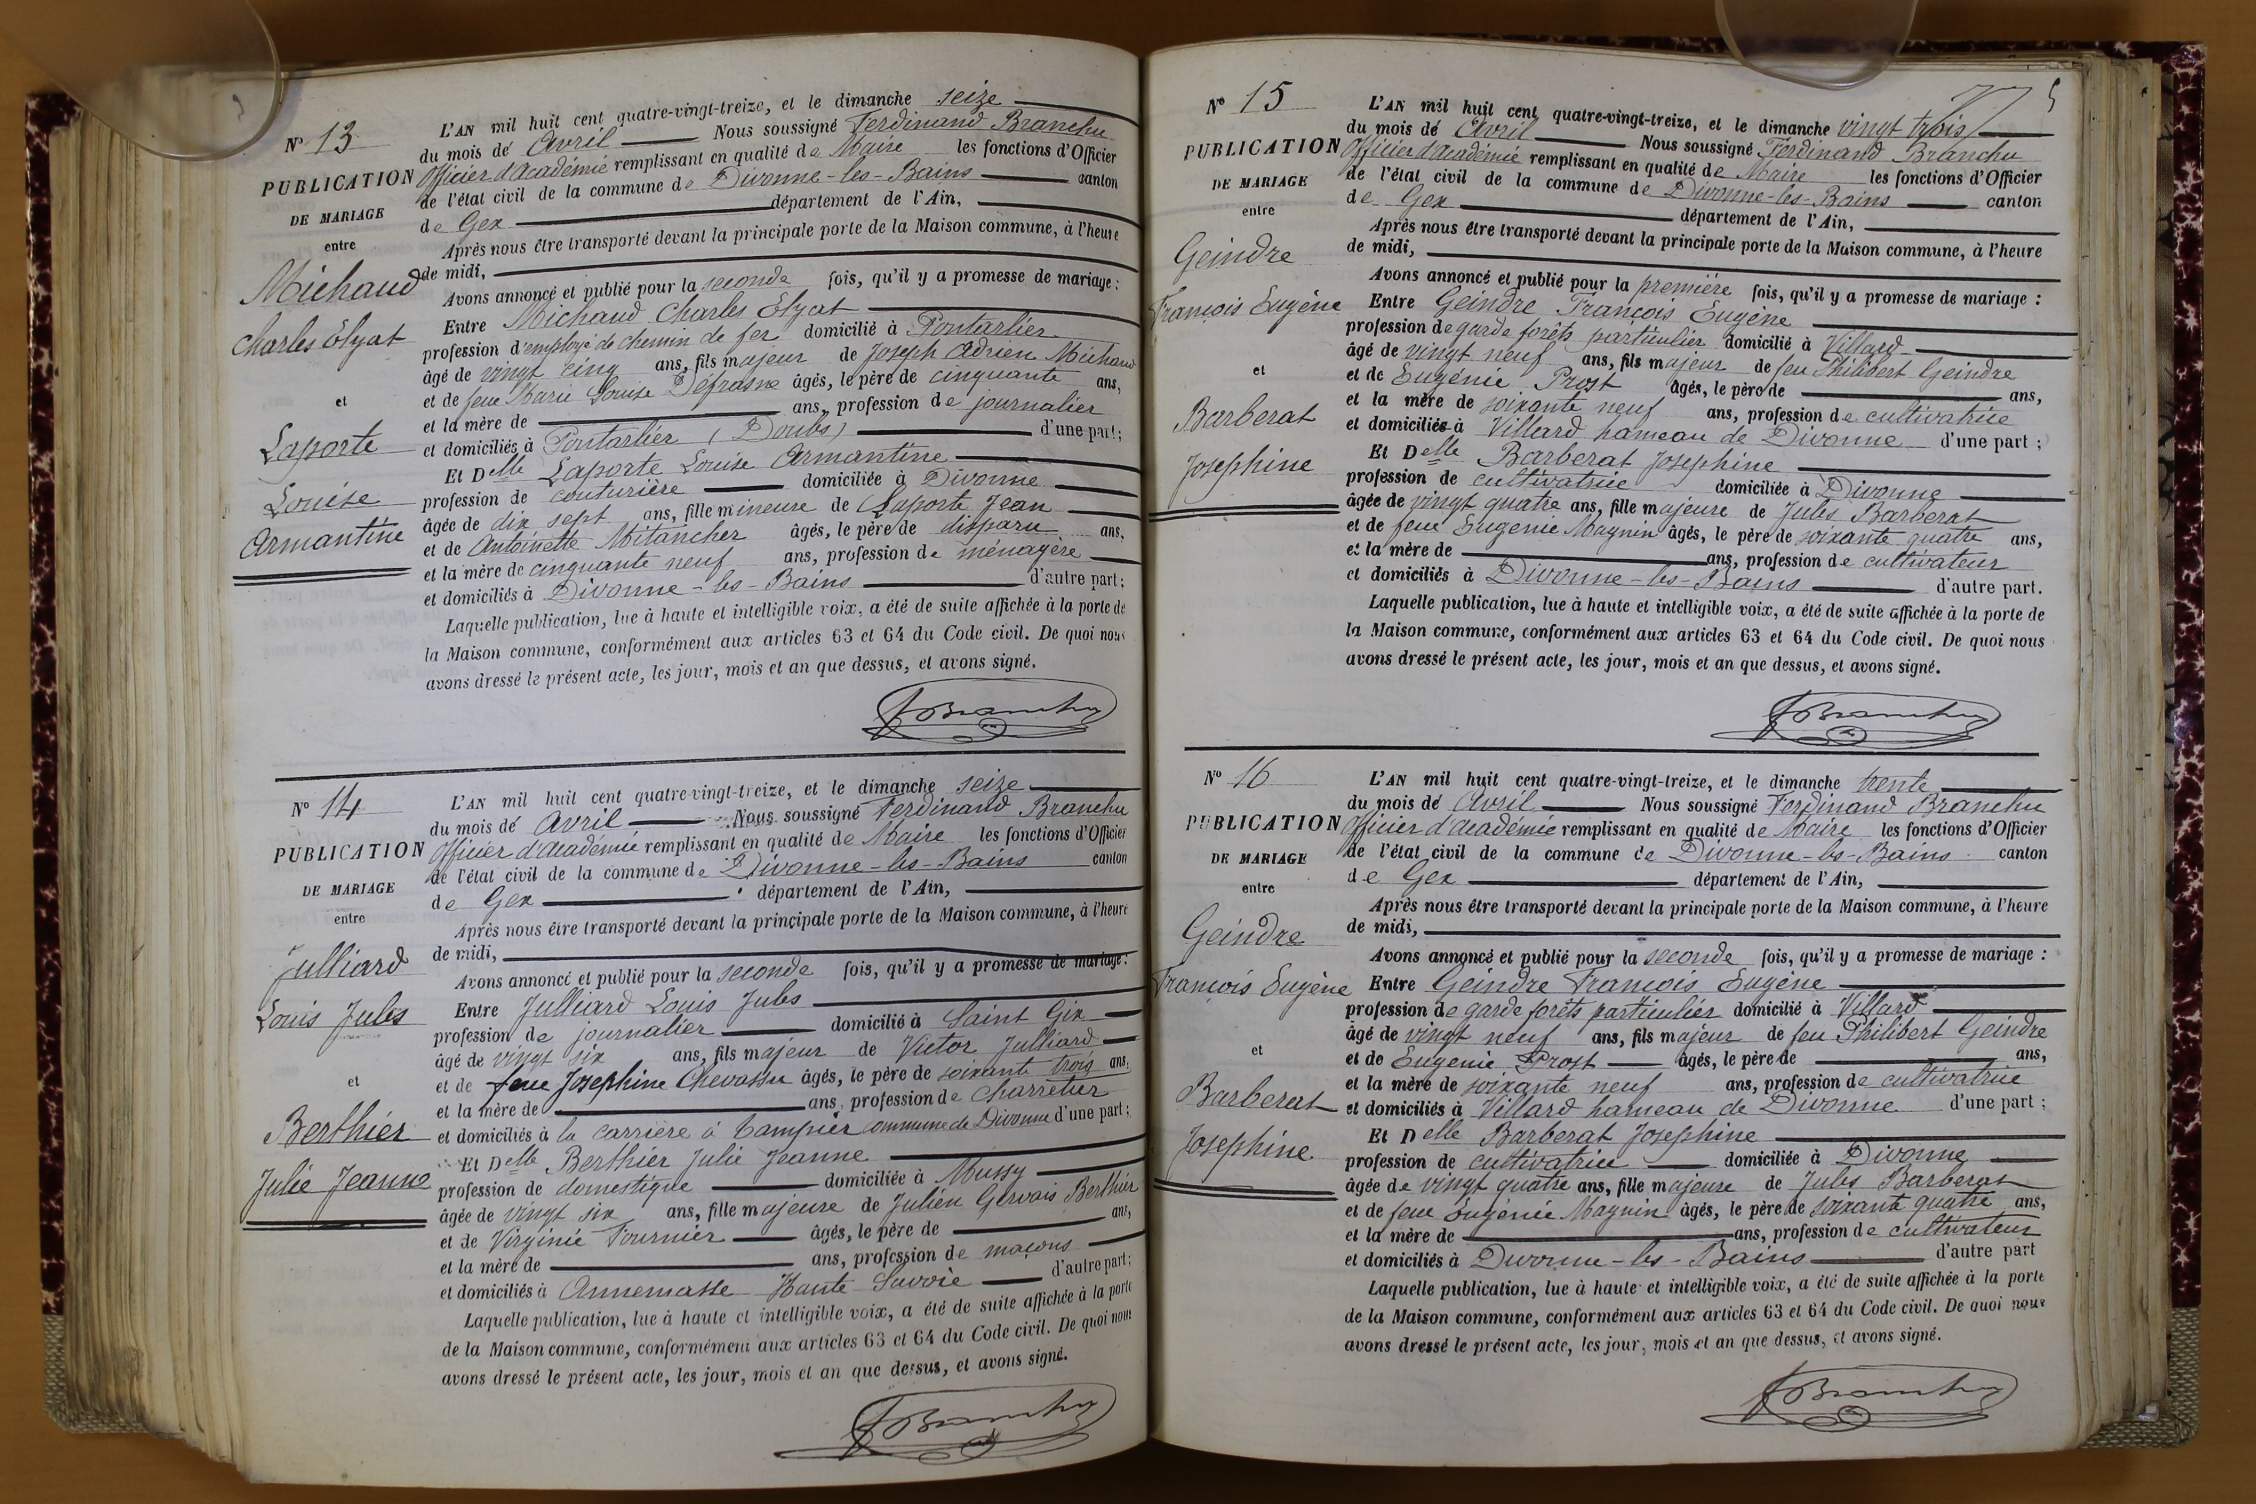 N° 13
PUBLICATION
DE MARIAGE
entre
Michaud
Charles Elyat
et
Laporte
Louise
Armantine
L'AN mil huit cent quatre-vingt-treize, et le dimanche seize
du mois de Avril Nous soussigné Ferdinand Branchu
Officier d'Académie remplissant en qualité de Maire les fonctions d'Officier
de l'état civil de la commune de Divonne-les-Bains canton
de Gex département de l'Ain,
Après nous être transporté devant la principale porte de la Maison commune, à l'heure
de midi,
Avons annoncé et publié pour la seconde fois, qu'il y a promesse de mariage :
Entre Michaud Charles Elyat
profession d'employé de chemin de fer domicilié à Pontarlier
âgé de vingt cinq ans, fils majeur de Joseph Adrien Michaud
et de feue Marie Louise Defrasne âgés, le père de cinquante ans,
et la mère de ans, profession de journalier
et domiciliés à Pontarlier (Doubs) d'une part ;
Et Delle Laporte Louise Armantine
profession de couturière domiciliée à Divonne
âgée de dix sept ans, fille mineure de Laporte Jean
et de Antoinette Mitancher âgés, le père de disparu ans,
et la mère de cinquante neuf ans, profession de ménagère
et domiciliés à Divonne-les-Bains d'autre part ;
Laquelle publication, lue à haute et intelligible voix, a été de suite affichée à la porte de
la Maison commune, conformément aux articles 63 et 64 du Code civil. De quoi nous
avons dressé le présent acte, les jour, mois et an que dessus, et avons signé.
FBranchu
N° 14
PUBLICATION
DE MARIAGE
entre
Julliard
Louis Jules
et
Berthier
Julie Jeanne
L'AN mil huit cent quatre-vingt-treize, et le dimanche seize
du mois de Avril Nous soussigné Ferdinand Branchu
Officier d'Académie remplissant en qualité de Maire les fonctions d'Officier
de l'état civil de la commune de Divonne-les-Bains canton
de Gex département de l'Ain,
Après nous être transporté devant la principale porte de la Maison commune, à l'heure
de midi,
Avons annoncé et publié pour la seconde fois, qu'il y a promesse de mariage :
Entre Julliard Louis Jules
profession de journalier domicilié à Saint Gix
âgé de vingt six ans, fils majeur de Victor Julliard
et de feue Josephine Chevassu âgés, le père de soixante trois ans,
et la mère de ans, profession de charretier
et domiciliés à la carrière à commune de Divonne d'une part ;
Et Delle Berthier Julie Jeanne
profession de domestique domiciliée à Mussy
âgée de vingt six ans, fille majeure de Julien Gervais Berthier
et de Virginie Fournier âgés, le père de ans,
et la mère de ans, profession de maçons
et domiciliés à Annemasse Haute Savoie d'autre part ;
Laquelle publication, lue à haute et intelligible voix, a été de suite affichée à la porte
de la Maison commune, conformément aux articles 63 et 64 du Code civil. De quoi nous
avons dressé le présent acte, les jour, mois et an que dessus, et avons signé.
FBranchu
N° 15
PUBLICATION
DE MARIAGE
entre
Geindre
François Eugène
et
Barberat
Josephine
L'AN mil huit cent quatre-vingt-treize, et le dimanche vingt trois
du mois de Avril Nous soussigné Ferdinand Branchu
Officier d'Académie remplissant en qualité de Maire les fonctions d'Officier
de l'état civil de la commune de Divonne-les-Bains canton
de Gex département de l'Ain,
Après nous être transporté devant la principale porte de la Maison commune, à l'heure
de midi,
Avons annoncé et publié pour la première fois, qu'il y a promesse de mariage :
Entre Geindre François Eugène
profession de garde forêts particulier domicilié à Villard
âgé de vingt neuf ans, fils majeur de feu Philibert Geindre
et de Eugénie Prost âgés, le père de ans,
et la mère de soixante neuf ans, profession de cultivatrice
et domiciliés à Villard hameau de Divonne d'une part ;
Et Delle Barberat Josephine
profession de cultivatrice domiciliée à Divonne
âgée de vingt quatre ans, fille majeure de Jules Barberat
et de feue Eugenie Magnin âgés, le père de soixante quatre ans,
et la mère de ans, profession de cultivateur
et domiciliés à Divonne-les-Bains d'autre part.
Laquelle publication, lue à haute et intelligible voix, a été de suite affichée à la porte de
la Maison commune, conformément aux articles 63 et 64 du Code civil. De quoi nous
avons dressé le présent acte, les jour, mois et an que dessus, et avons signé.
FBranchu
N° 16
PUBLICATION
DE MARIAGE
entre
Geindre
François Eugène
et
Barberat
Josephine
L'AN mil huit cent quatre-vingt-treize, et le dimanche trente
du mois de Avril Nous soussigné Ferdinand Branchu
Officier d'Académie remplissant en qualité de Maire les fonctions d'Officier
de l'état civil de la commune de Divonne-les-Bains canton
de Gex département de l'Ain,
Après nous être transporté devant la principale porte de la Maison commune, à l'heure
de midi,
Avons annoncé et publié pour la seconde fois, qu'il y a promesse de mariage :
Entre Geindre François Eugène
profession de garde forêts particulier domicilié à Villard
âgé de vingt neuf ans, fils majeur de feu Philibert Geindre
et de Eugenie Prost âgés, le père de ans,
et la mère de soixante neuf ans, profession de cultivatrice
et domiciliés à Villard hameau de Divonne d'une part ;
Et Delle Barberat Josephine
profession de cultivatrice domiciliée à Divonne
âgée de vingt quatre ans, fille majeure de Jules Barberat
et de feue Eugénie Magnin âgés, le père de soixante quatre ans,
et la mère de ans, profession de cultivateur
et domiciliés à Divonne-les-Bains d'autre part
Laquelle publication, lue à haute et intelligible voix, a été de suite affichée à la porte
de la Maison commune, conformément aux articles 63 et 64 du Code civil. De quoi nous
avons dressé le présent acte, les jour, mois et an que dessus, et avons signé.
FBranchu